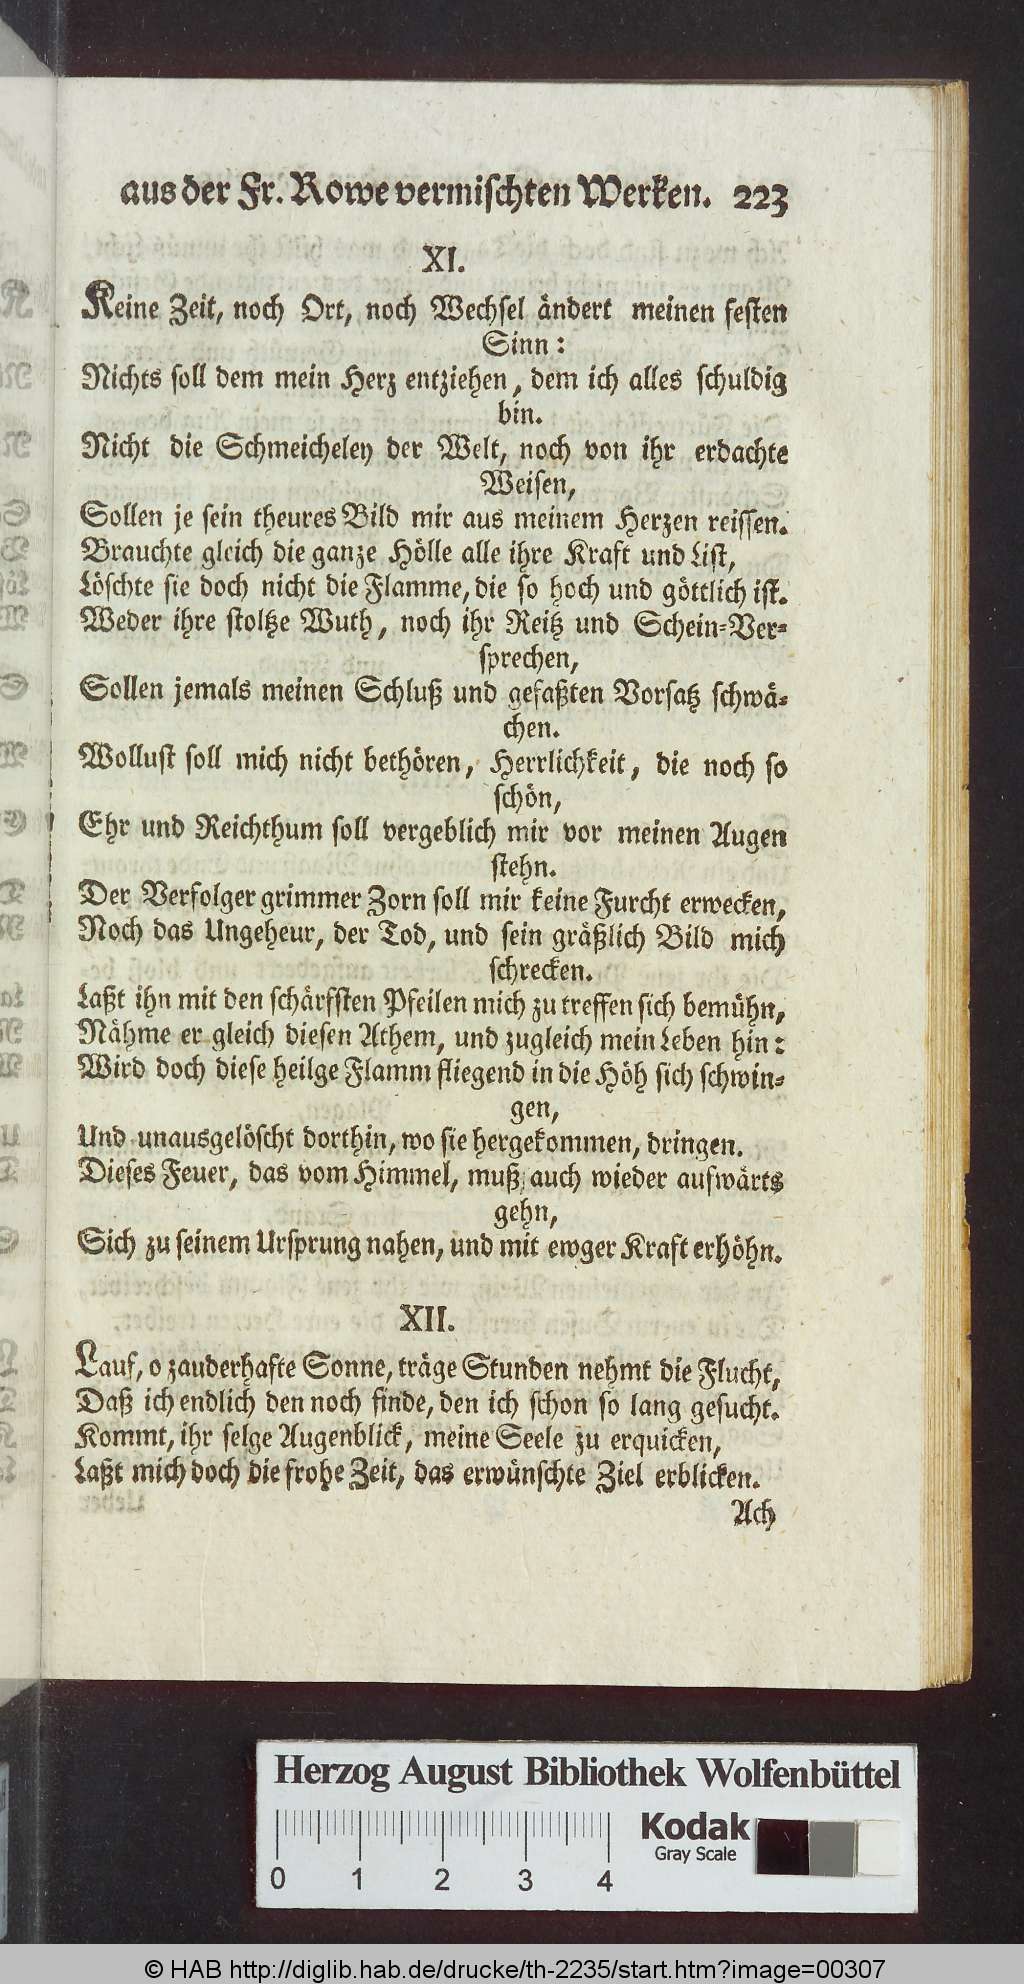 aus der Fr. Rowe vermischten Werken. 223
XI.
Keine Zeit, noch Ort, noch Wechsel ändert meinen festen
Sinn:
Nichts soll dem mein Herz entziehen, dem ich alles schuldig
bin.
Nicht die Schmeicheley der Welt, noch von ihr erdachte
Weisen,
Sollen je sein theures Bild mir aus meinem Herzen reissen.
Brauchte gleich die ganze Hölle alle ihre Kraft und List,
Löschte sie doch nicht die Flamme, die so hoch und göttlich ist.
Weder ihre stoltze Wuth, noch ihr Reitz und Schein-Ver-
sprechen,
Sollen jemals meinen Schluß und gefaßten Vorsatz schwä-
chen.
Wollust soll mich nicht bethören, Herrlichkeit, die noch so
schön,
Ehr und Reichthum soll vergeblich mir vor meinen Augen
stehn.
Der Verfolger grimmer Zorn soll mir keine Furcht erwecken,
Noch das Ungeheur, der Tod, und sein gräßlich Bild mich
schrecken.
Laßt ihn mit den schärfsten Pfeilen mich zu treffen sich bemühn,
Nähme er gleich diesen Athem, und zugleich mein Leben hin:
Wird doch diese heilge Flamm fliegend in die Höh sich schwin-
gen,
Und unausgelöscht dorthin, wo sie hergekommen, dringen.
Dieses Feuer, das vom Himmel, muß auch wieder aufwärts
gehn,
Sich zu seinem Ursprung nahen, und mit ewger Kraft erhöhn.
XII.
Lauf, o zauderhafte Sonne, träge Stunden nehmt die Flucht,
Daß ich endlich den noch finde, den ich schon so lang gesucht.
Kommt, ihr selge Augenblick, meine Seele zu erquicken,
Laßt mich doch die frohe Zeit, das erwünschte Ziel erblicken.
Ach
Herzog August Bibliothek Wolfenbüttel
Kodak
Gray Scale
0 1 2 3 4
© HAB http://diglib.hab.de/drucke/th-2235/start.htm?image=00307